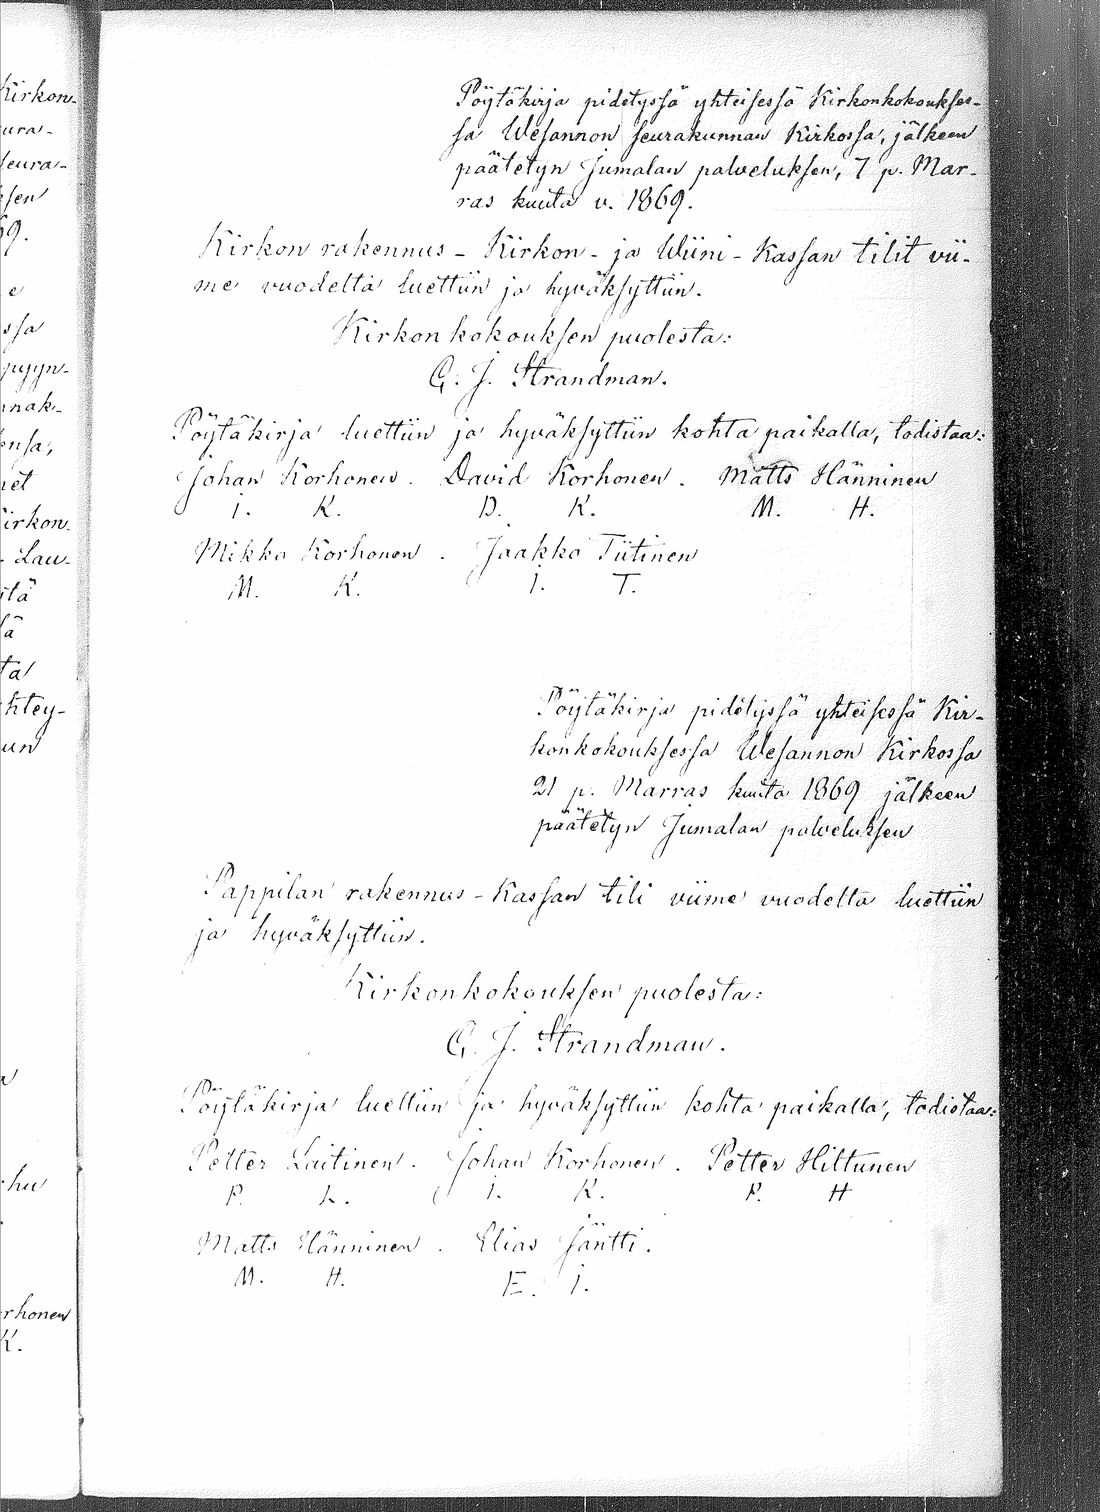 Kirkon-
ura-
seura-
ksen
69.
e
ssa
pyyn-
nnak-
ensa,
net
Kirkon-
- Lau-
itä
sä
ta
htey-
un
hu
rhonen
K.
Pöytäkirja pidetyssä yhteisessä Kirkonkokoukses-
sa Wesannon seurakunnan Kirkossa, jälkeen
päätetyn Jumalan palveluksen, 7 p. Mar-
ras kuuta v. 1869.
Kirkon rakennus - Kirkon - ja Wiini - Kassan tilit vii-
me vuodelta luettiin ja hyväksyttiin.
Kirkonkokouksen puolesta:
G. J. Strandman.
Pöytäkirja luettiin ja hyväksyttiin kohta paikalla, todistaa:
Johan Korhonen. David Korhonen. Matts Hänninen
I. K. D. K. M. H.
Mikko Korhonen. Jaakko Tiitinen
M. K. I. T.
Pöytäkirja pidetyssä yhteisessä Kir-
konkokouksessa Wesannon Kirkossa
21 p. Marras kuuta 1869 jälkeen
päätetyn Jumalan palveluksen
Pappilan rakennus - Kassan tili viime vuodelta luettiin
ja hyväksyttiin.
Kirkonkokouksen puolesta:
G. J. Strandman.
Pöytäkirja luettiin ja hyväksyttiin kohta paikalla, todistaa:
Petter Laitinen. Johan Korhonen. Petter Hiltunen
P. L. I. K. P. H
Matts Hänninen. Elias Jäntti.
M. H. E. I.